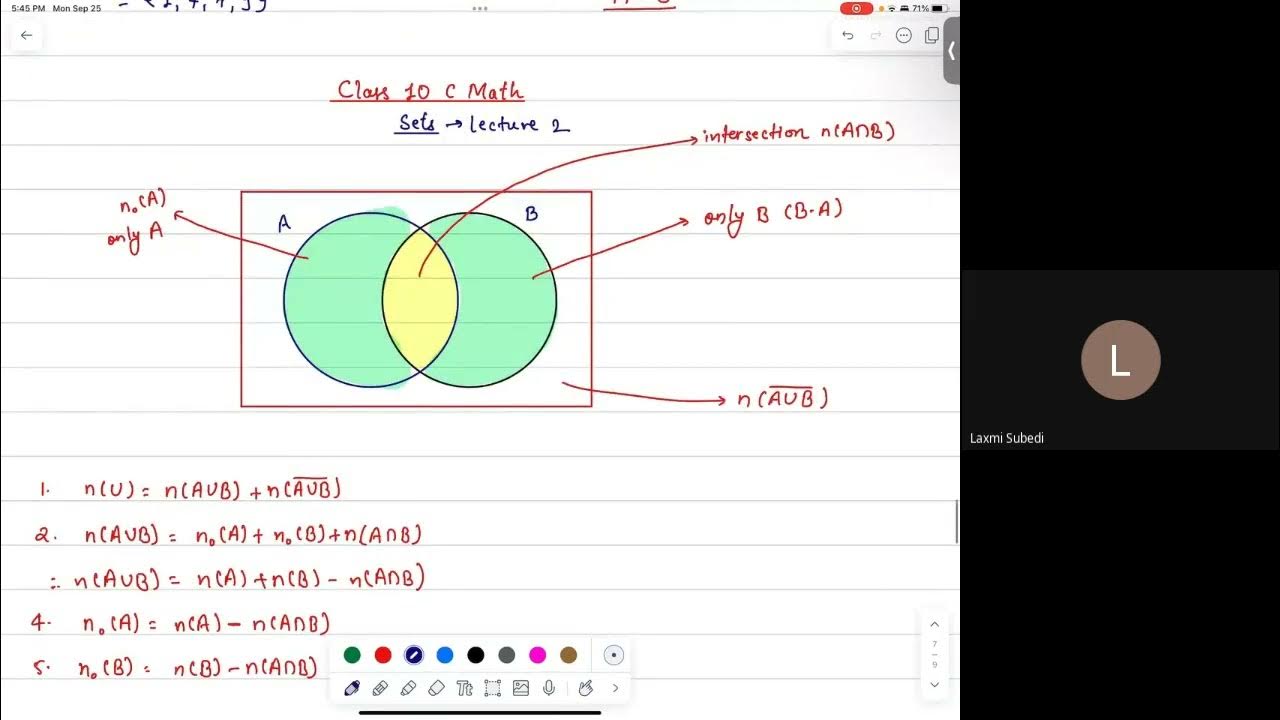 5:45 PM Mon Sep 25
71%
Class 10 C Math
Sets → lecture 2
intersection n(A∩B)
n₀(A)
only A
A
B
only B (B-A)
n(A̅∪̅B̅)
1. n(U) = n(A∪B) + n(A̅∪̅B̅)
2. n(A∪B) = n₀(A) + n₀(B) + n(A∩B)
∴ n(A∪B) = n(A) + n(B) - n(A∩B)
4. n₀(A) = n(A) - n(A∩B)
5. n₀(B) = n(B) - n(A∩B)
Tt
7
9
L
Laxmi Subedi